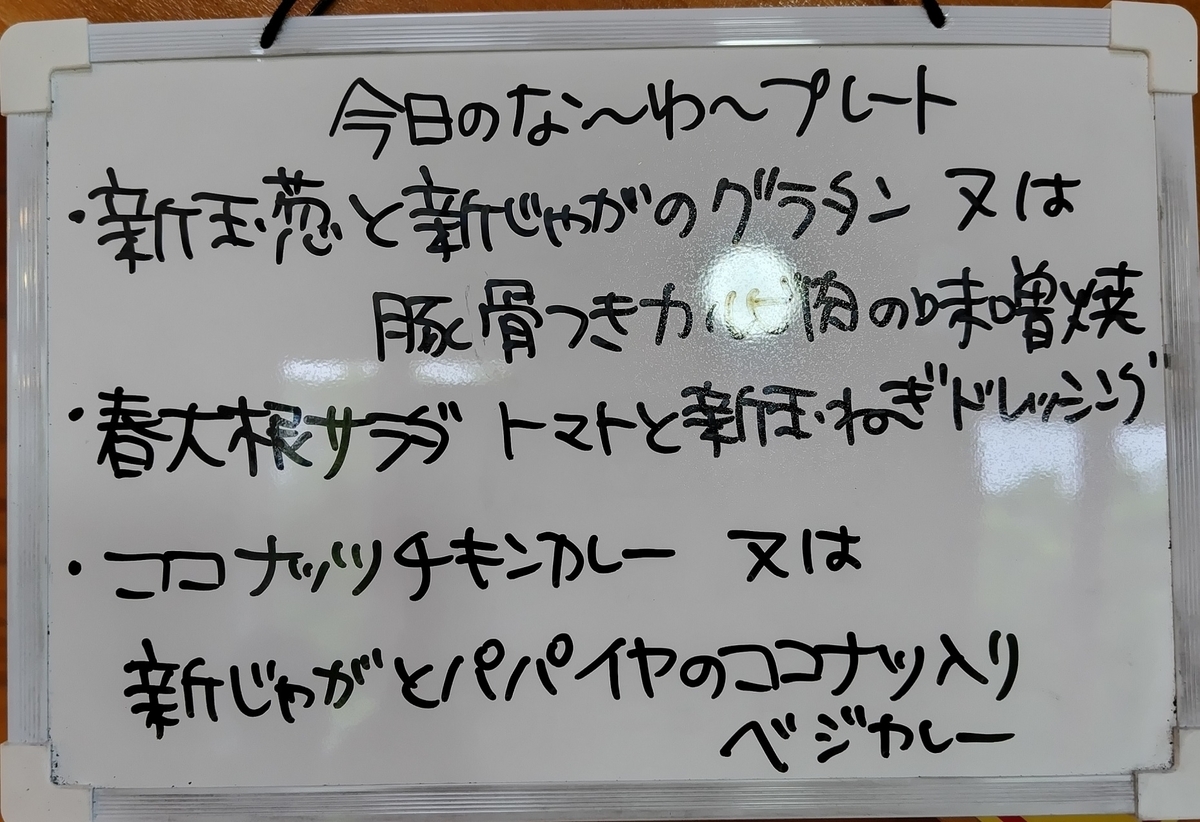 今日のな〜わ〜プレート
・新玉葱と新じゃがのグラタン 又は
豚骨つきカルビ肉の味噌焼
・春大根サラダ トマトと新玉ねぎドレッシング
・ココナッツチキンカレー 又は
新じゃがとパパイヤのココナツ入り
ベジカレー